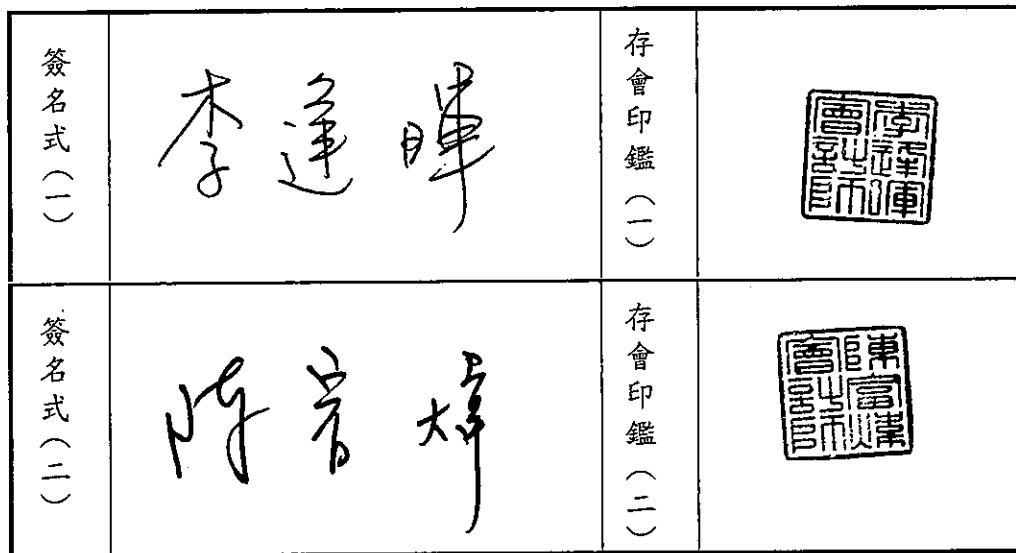 簽名式（一）
李逢暉
存會印鑑（一）
李逢暉
會計師
簽名式（二）
陳富煒
存會印鑑（二）
陳富煒
會計師